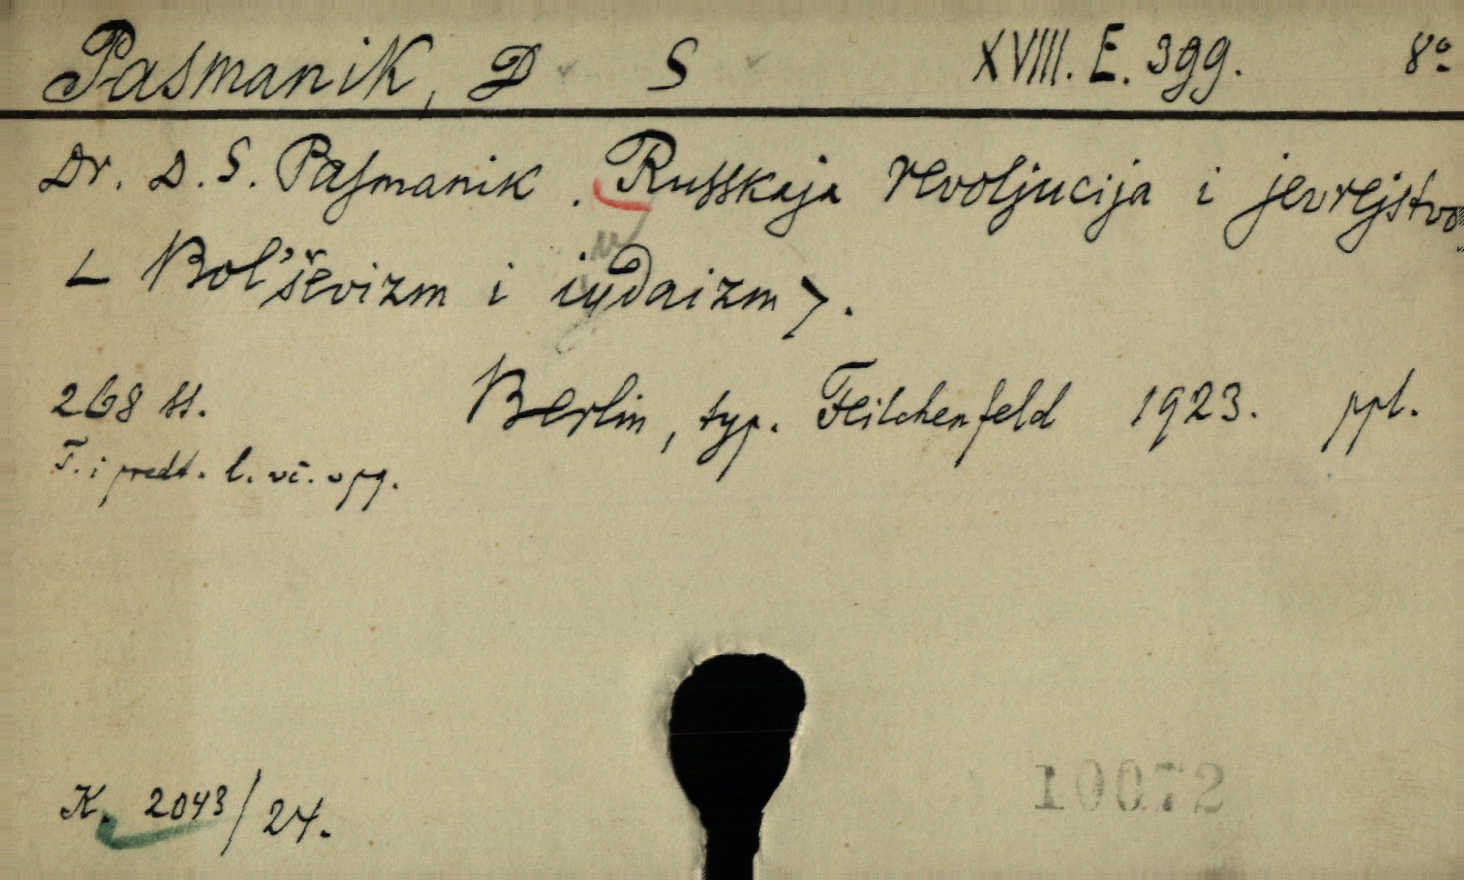 Pasmanik, D S XVIII. E. 399. 8º
Dr. D. S. Pasmanik. Russkaja revoljucija i jevrejstvo
< Bol'ševizm i iudaizm >.
268 ss. Berlin, typ. Feilchenfeld 1923. ppl.
T. i předt. l. vč. v pg.
K. 2043/24.
10072